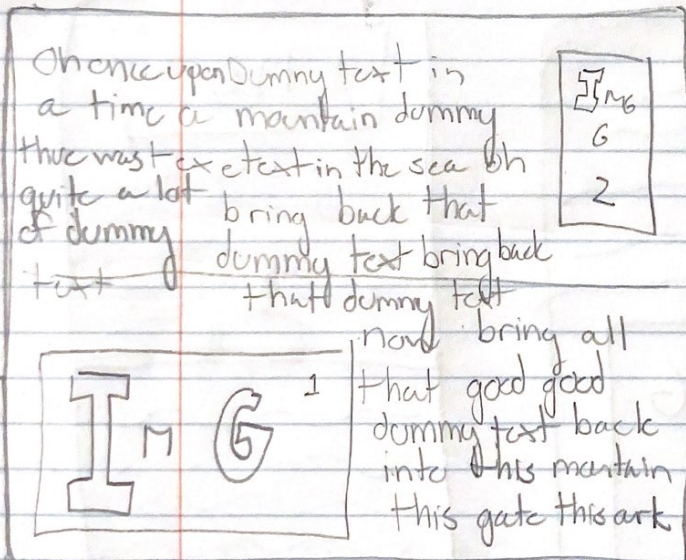 Oh once upon Dummy text in
a time a mountain dummy
thue was text etext in the sea Oh
quite a lot bring back that
of dummy dummy text bring back
text that dummy text
now bring all
that good good
dummy text back
into this mantain
this gate this ark
IMG
G
2
IMG 1